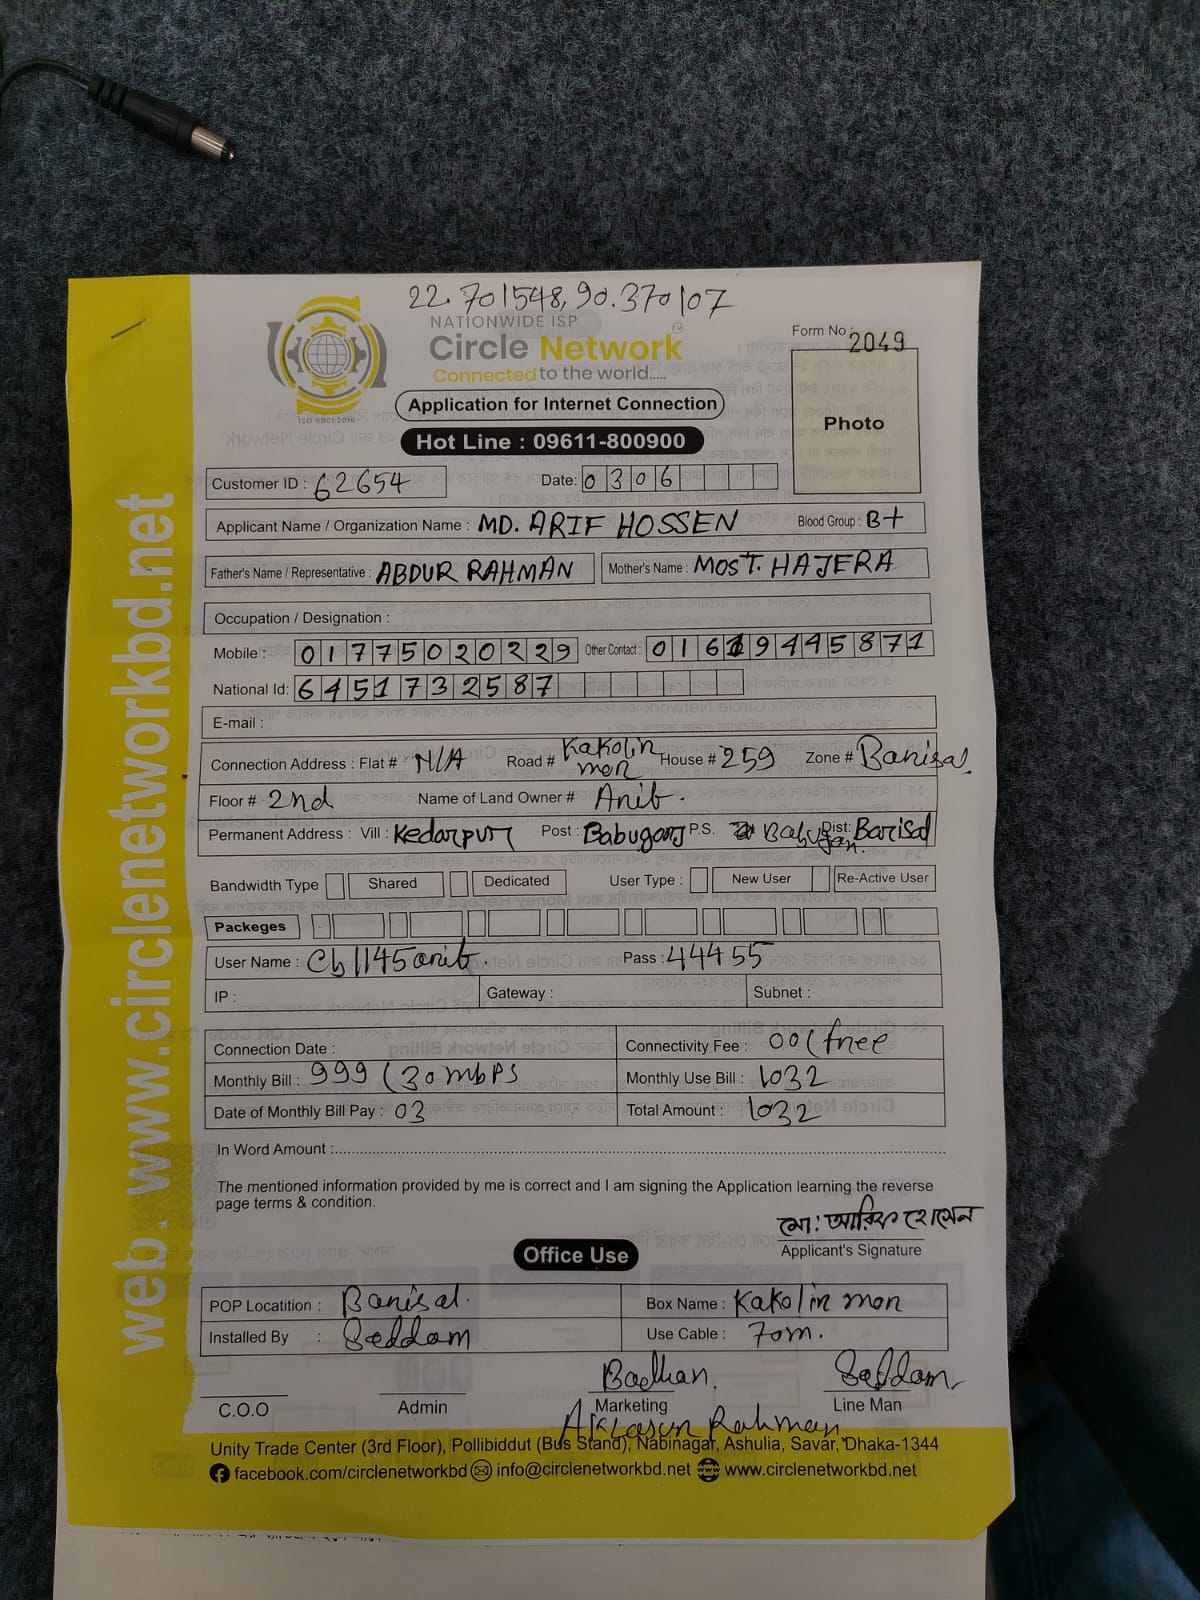 22.701548, 90.370107
NATIONWIDE ISP
Circle Network
Connected to the world.....
ISO 9001:2015
Form No : 2049
Photo
Application for Internet Connection
Hot Line : 09611-800900
Customer ID : 62654 Date: 0306
Applicant Name / Organization Name : MD. ARIF HOSSEN Blood Group : B+
Father's Name / Representative : ABDUR RAHMAN Mother's Name : MOST. HAJERA
Occupation / Designation :
Mobile : 01775020229 Other Contact : 01619445871
National Id: 6451732587
E-mail :
Connection Address : Flat # N/A Road # Kakolir mor House # 259 Zone # Barisal.
Floor # 2nd Name of Land Owner # Arib.
Permanent Address : Vill : Kedarpur Post : Babuganj P.S. Babugan. Dist: Barisal
Bandwidth Type Shared Dedicated User Type : New User Re-Active User
Packeges
User Name : Cb1145arib. Pass : 44455
IP : Gateway : Subnet :
Connection Date : Connectivity Fee : 00 (free
Monthly Bill : 999 (30 mbPS Monthly Use Bill : 1032
Date of Monthly Bill Pay : 03 Total Amount : 1032
In Word Amount :
The mentioned information provided by me is correct and I am signing the Application learning the reverse
page terms & condition.
মো: আরিফ হোসেন
Applicant's Signature
Office Use
POP Locatition : Barisal. Box Name : Kakolir mor
Installed By : Saddam Use Cable : 70m.
Badhan. Saddam
C.O.O Admin Marketing Line Man
Rahman
Unity Trade Center (3rd Floor), Pollibiddut (Bus Stand), Nabinagar, Ashulia, Savar, Dhaka-1344
facebook.com/circlenetworkbd info@circlenetworkbd.net www.circlenetworkbd.net
web : www.circlenetworkbd.net